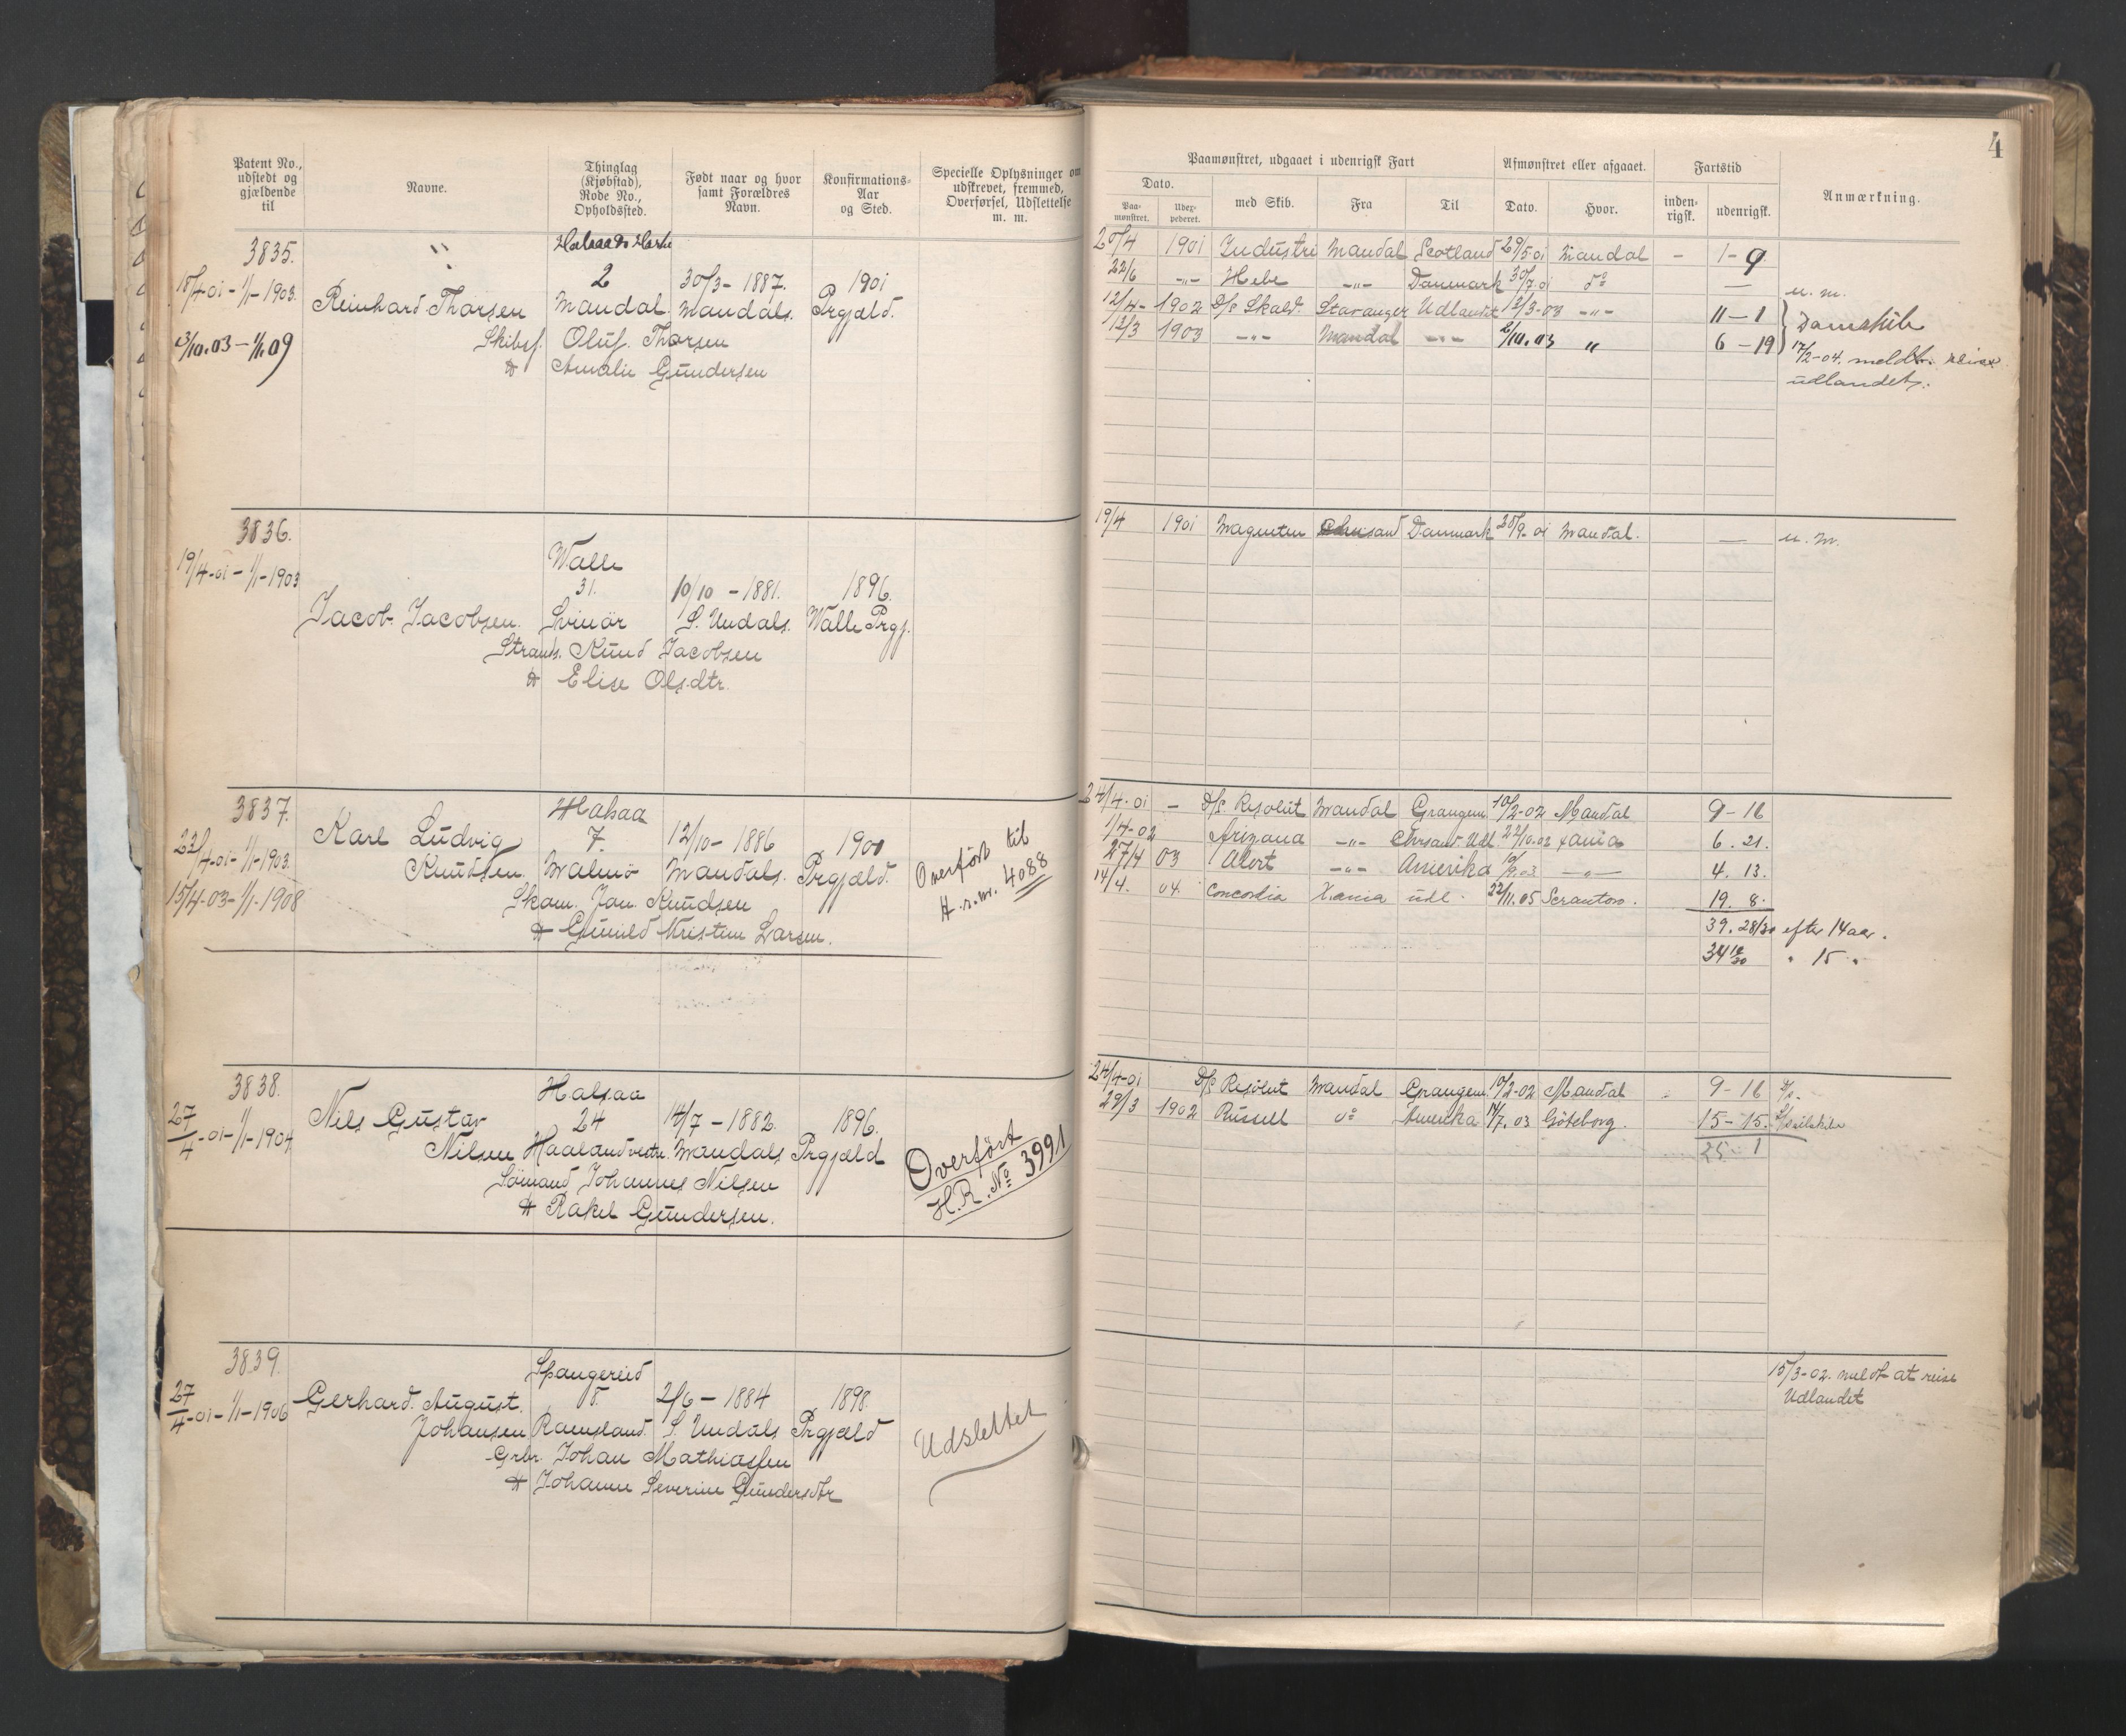 4
Patent No., udstedt og gjældende til
Navne.
Thinglag (Kjøbstad), Rode No., Opholdssted.
Født naar og hvor samt Forældres Navn.
Konfirmations-Aar og Sted.
Specielle Oplysninger om udskrevet, fremmed, Overførsel, Udslettelse m. m.
Paamønstret, udgaaet i udenrigsk Fart
Afmønstret eller afgaaet.
Fartstid
Anmærkning.
Dato.
Paa-mønstret.
Udex-pederet.
med Skib.
Fra
Til
Dato.
Hvor.
inden-rigsk.
udenrigsk.
3835.
2 30/3 - 1887. 1901
18/4-01 - 1/1-1903.
Reinhard Thorsen Mandal. Mandals. Prgjæld.
3/10.03 - 1/1.09
Skibsf. Oluf. Thorsen
Amalie Gundersen
20/4 1901 Industri Mandal Scotland 29/5.01 Mandal - 1 - 9
22/6 -"- Hebe -"- Danmark 30/7.01 do — u. m.
12/4- 1902 D/S Skald. Stavanger Udlandet 12/3-03 -"- 11 - 1
12/3 1903 -"- Mandal -"- 2/10.03 " 6 - 19
Damskib
17/2-04. meldt reise
udlandet.
3836.
19/4-01 - 1/1-1903
Walle
31. 10/10 - 1881. 1896.
Jacob Jacobsen. Svinør S. Undals. Walle Prgj.
Strands. Knud Jacobsen
Elise Olsdtr.
19/4 1901 Magneten Chrisand Danmark 20/9-01 Mandal. — u. m.
3837.
Halsaa
Karl Ludvig 7. 12/10 - 1886 1900
23/4-01 - 1/1-1903.
Knudsen. Malmö Mandals. Prgjæld.
15/4-03 - 1/1-1908
Skom. Jan. Knudsen
Gunild Kristine Larsen.
Overført til
H.r.nr. 4088
24/4-01 - D/S Resolut Mandal Grangem 10/2-02 Mandal 9 - 16
1/4-02 Arizona -"- Chrsand. Udl. 22/10.02 Xania 6. 21.
27/4 03 Alert -"- Amerika 10/9.03 -"- 4. 13.
14/4. 04 Concordia Xania udl. 22/11.05 Scranton. 19. 8.
39. 28/30 efter 14 aar.
34 12/30 " 15 "
3838.
Halsaa
27/4-01 - 1/1-1904
Nils Gustav 24 14/7 - 1882. 1896.
Nilsen Haaland vestre. Mandals Prgjæld
Sömand Johannes Nilsen
Rakel Gundersen.
Overført
H.R. No 3991
24/4-01 D/S Resolut Mandal Grangem 10/2-02 Mandal 9 - 16
29/3 1902 Russell do Amerika 14/7.03 Göteborg. 15 - 15. Seilskibe
25 1
3839.
Spangereid
27/4-01 - 1/1-1906
Gerhard August. 8. 2/6 - 1884 1898.
Johansen Ramsland. S. Undals Prgjæld
Grbr. Johan Mathiassen
Johanne Severine Gundersdtr
Udslettet
15/3-02. meldt at reise
Udlandet